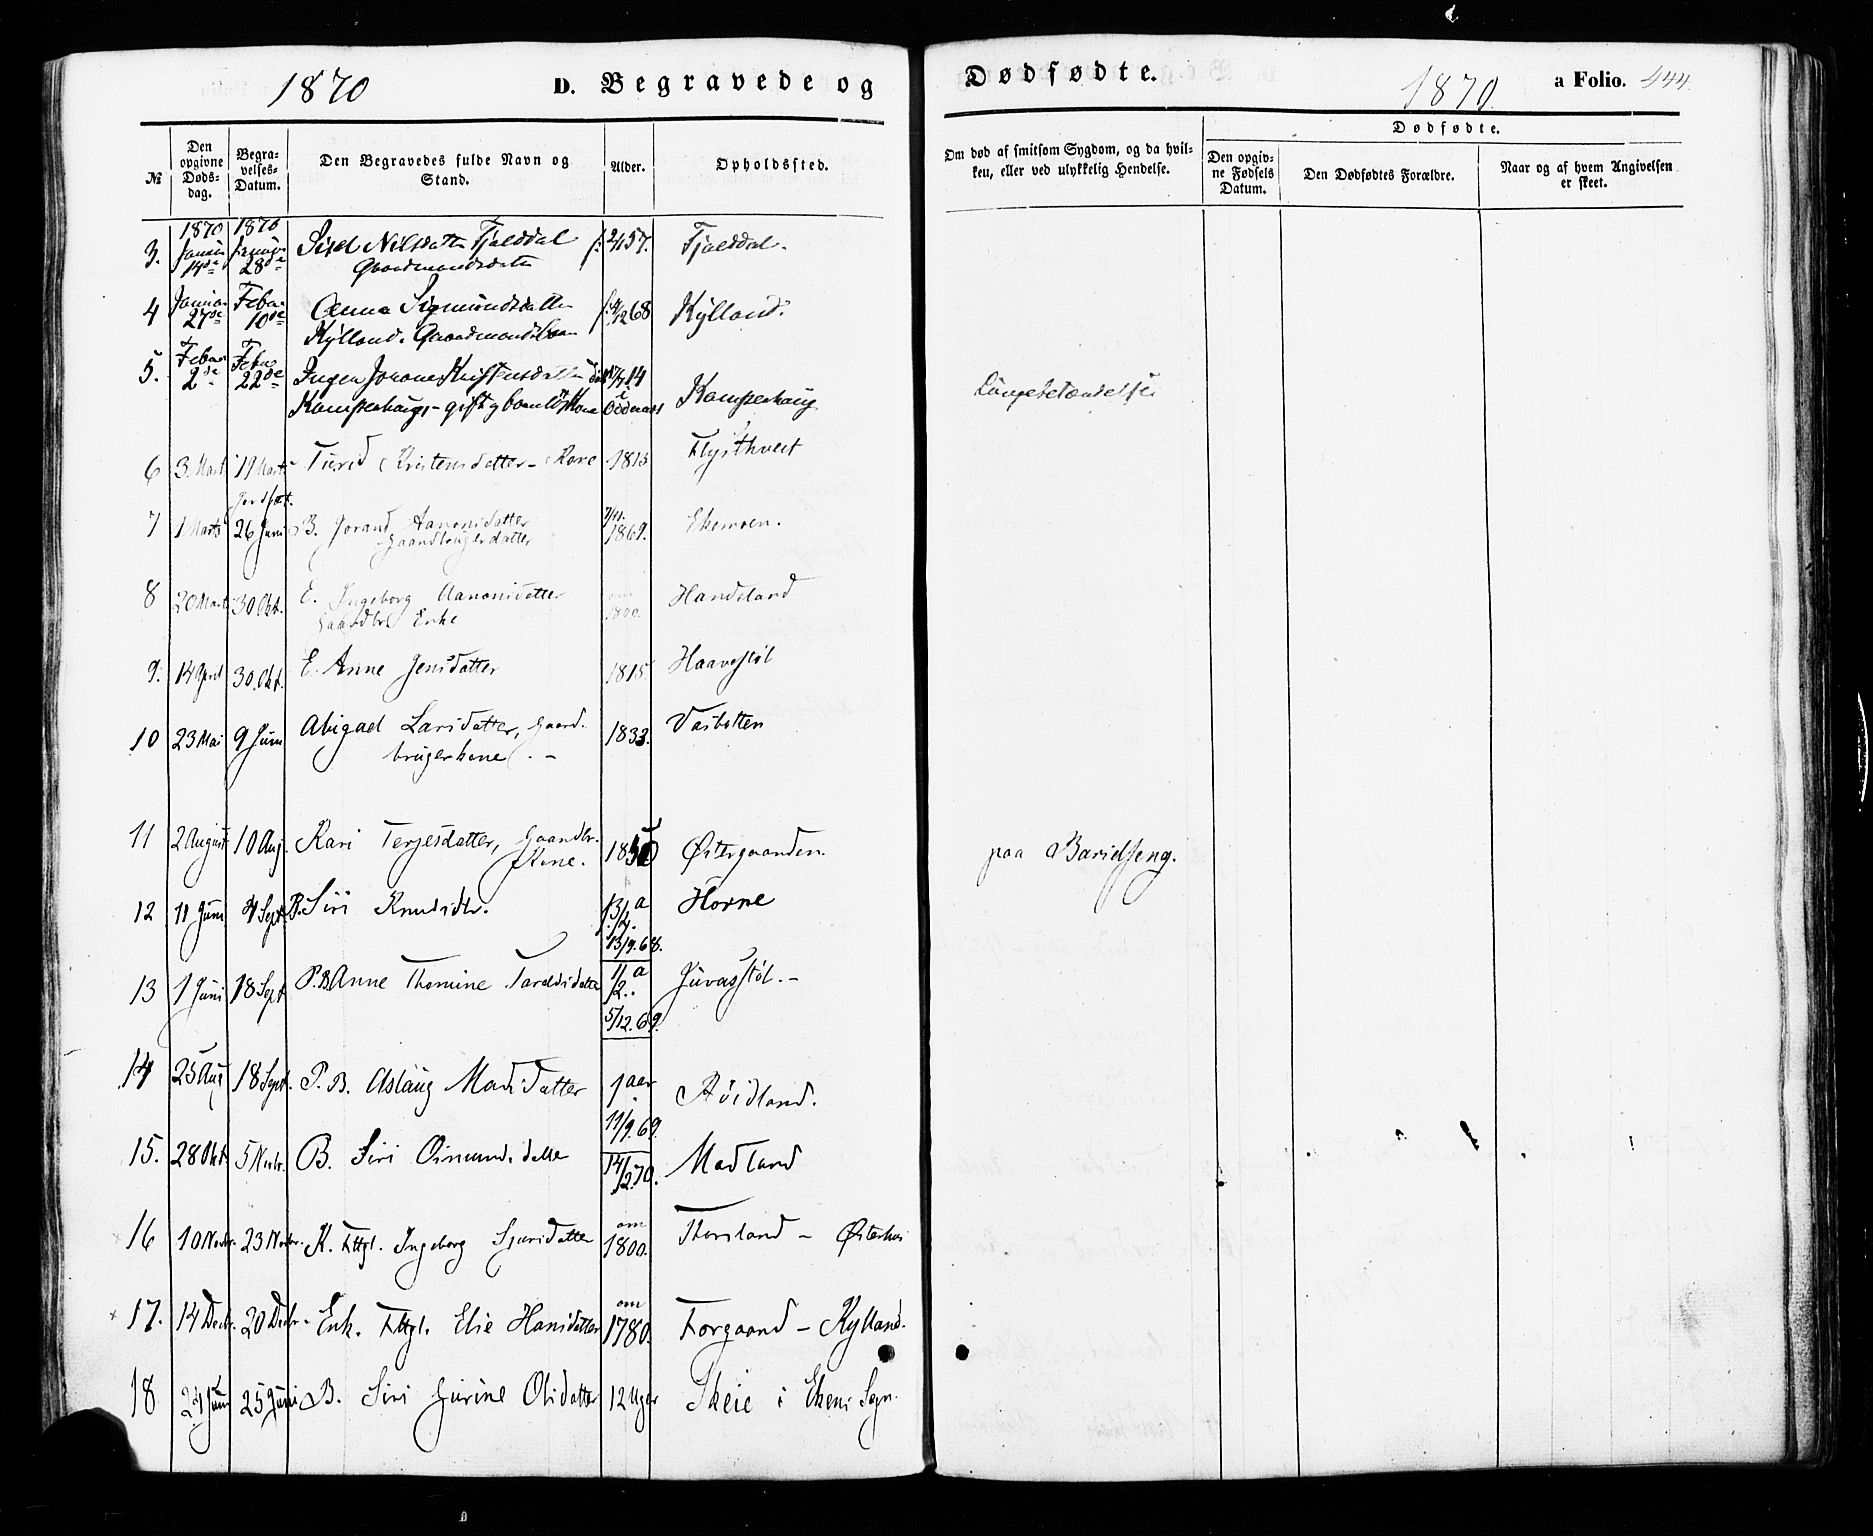 1870 D. Begravede og
Dødfødte. 1870 a Folio. 444
№ Den opgivne Døds-dag. Begra-velses-Datum. Den Begravedes fulde Navn og Stand. Alder. Opholdssted.
Om død af smitsom Sygdom, og da hvil-ken, eller ved ulykkelig Hendelse.
Dødfødte.
Den opgiv-ne Fødsels Datum. Den Dødfødtes Forældre. Naar og af hvem Angivelsen er skeet.
1870 1870
3. 14de 28de Sisel Nilsdatter Fjalddal f. 57. Fjalddal.
Gaardmandsdatter
4 Januar 27de Febr. 10de Anna Sigmundsdatter f. 68 Kylland.
Kylland. Gaardmandsbarn
5. Febr. 2de Febr. 22de Inger Jorane Kristensdatter 14
Kampenhaug - gift og barnløs Kone Kampenhaug Lungebetændelse
6 3. Mart 19 Marts Turid Kristensdatter - Kone 1813 Flysthveit
Jordfæt.
7 1 Marts 26 Juni B. Jorand Aanonsdatter 1869. Ekemoen.
Gaardbrugerdatter
8 20 Marts 30 Okt. E. Ingeborg Aanonsdatter om 1800. Handeland
Gaardbr. Enke
9. 14 April 30. Okt. E. Anne Jensdatter 1815. Haavestøl
10 23 Mai 9 Juni Abigael Larsdatter, Gaard- 1833. Vasbotten
brugerkone. -
11 2 August 10 Aug. Kari Terjesdatter, Gaardbr. Østergaarden. paa Barselseng.
Kone.
12 11 Juni 4 Sept. P. Siri Knudsdtr. Horne
13/9.68.
13 1 Juni 18 Sept P.B. Anne Thomine Taraldsdatter 1/2 a Juvasstøl. -
5/12.69.
14 25 Aug 18 Sept. P. B. Aslaug Madsdatter 1 aar Røidland.
11/9.69.
15. 28 Okt. 5 Novbr. B. Siri Osmundsdatter 14/2 70. Madland
16 10 Novbr. 23 Novbr. K. Fttgl. Ingeborg Sjursdatter om 1800. Thorsland - Østerhus
17. 14 Decbr. 20 Decbr. Enk. Fttgl. Elie Hansdatter om 1780. Forgaard - Kylland.
18 24 Juni 25 Juni B. Siri Gurine Olsdatter 12 Uger Skeie i Ekens Sogn.